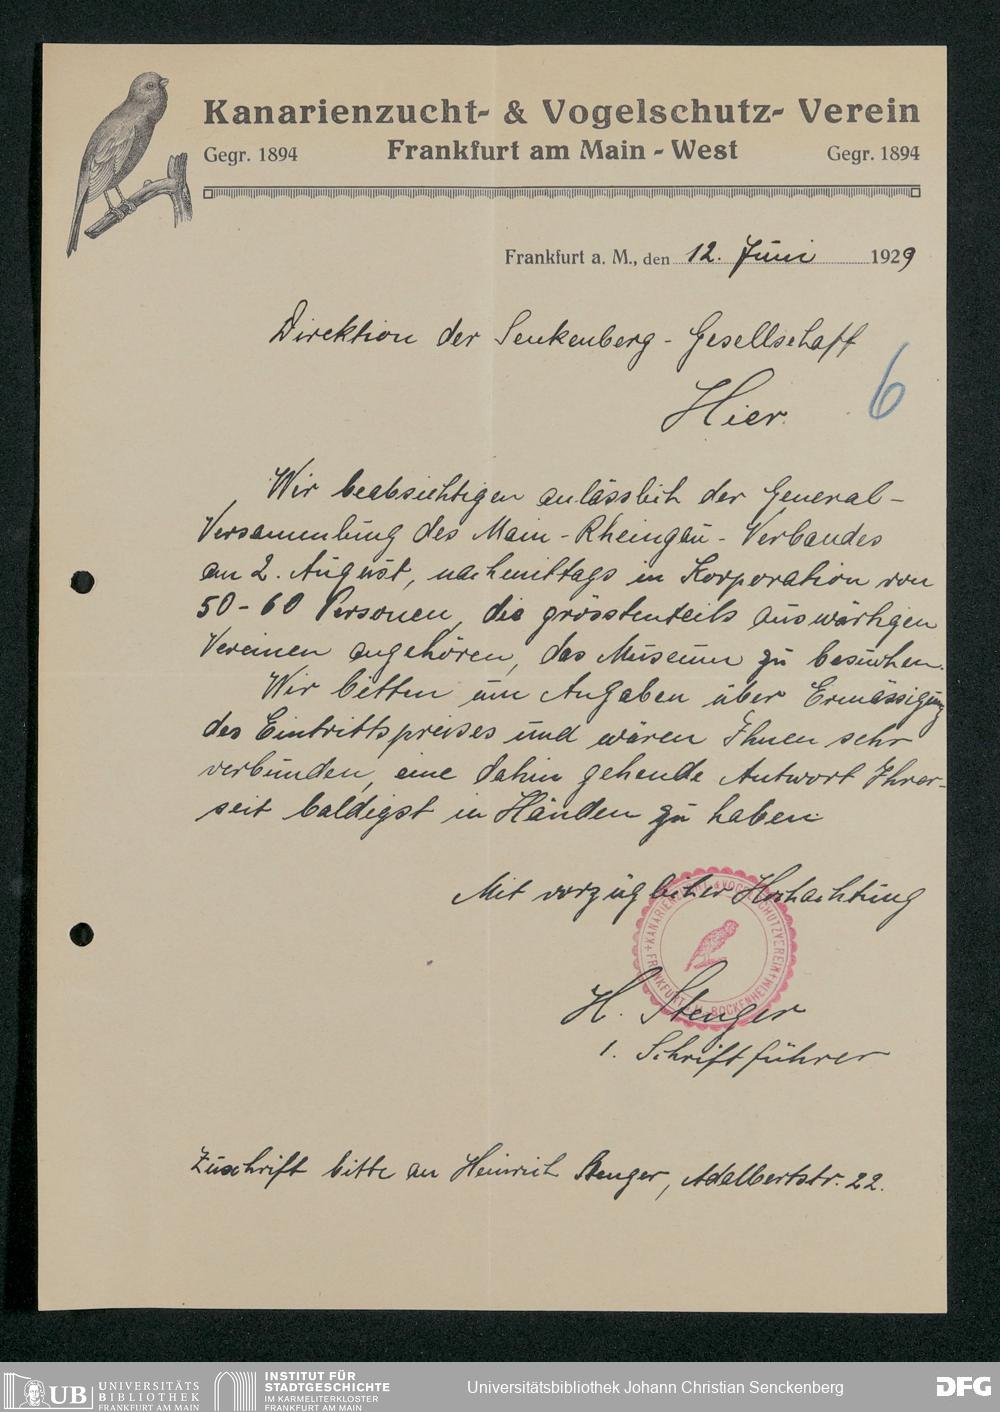 Kanarienzucht- & Vogelschutz- Verein
Gegr. 1894 Frankfurt am Main - West Gegr. 1894
Frankfurt a. M., den 12. Juni 1929
Direktion der Senkenberg - Gesellschaft
Hier.
6
Wir beabsichtigen anlässlich der General-
Versammlung des Main - Rheingau - Verbandes
am 2. August, nachmittags in Korporation von
50 - 60 Personen, die grösstenteils auswärtigen
Vereinen angehören, das Museum zu besuchen.
Wir bitten um Angaben über Ermässigung
des Eintrittspreises und wären Ihnen sehr
verbunden, eine dahin gehende Antwort Ihrer-
seit baldigst in Händen zu haben.
Mit vorzüglicher Hochachtung
KANARIENZUCHT- & VOGELSCHUTZVEREIN + FRANKFURT a. M. BOCKENHEIM +
H. Stenger
1. Schriftführer
Zuschrift bitte an Heinrich Stenger, Adalbertstr. 22.
UB UNIVERSITÄTS
BIBLIOTHEK
FRANKFURT AM MAIN
INSTITUT FÜR
STADTGESCHICHTE
IM KARMELITERKLOSTER
FRANKFURT AM MAIN
Universitätsbibliothek Johann Christian Senckenberg
DFG